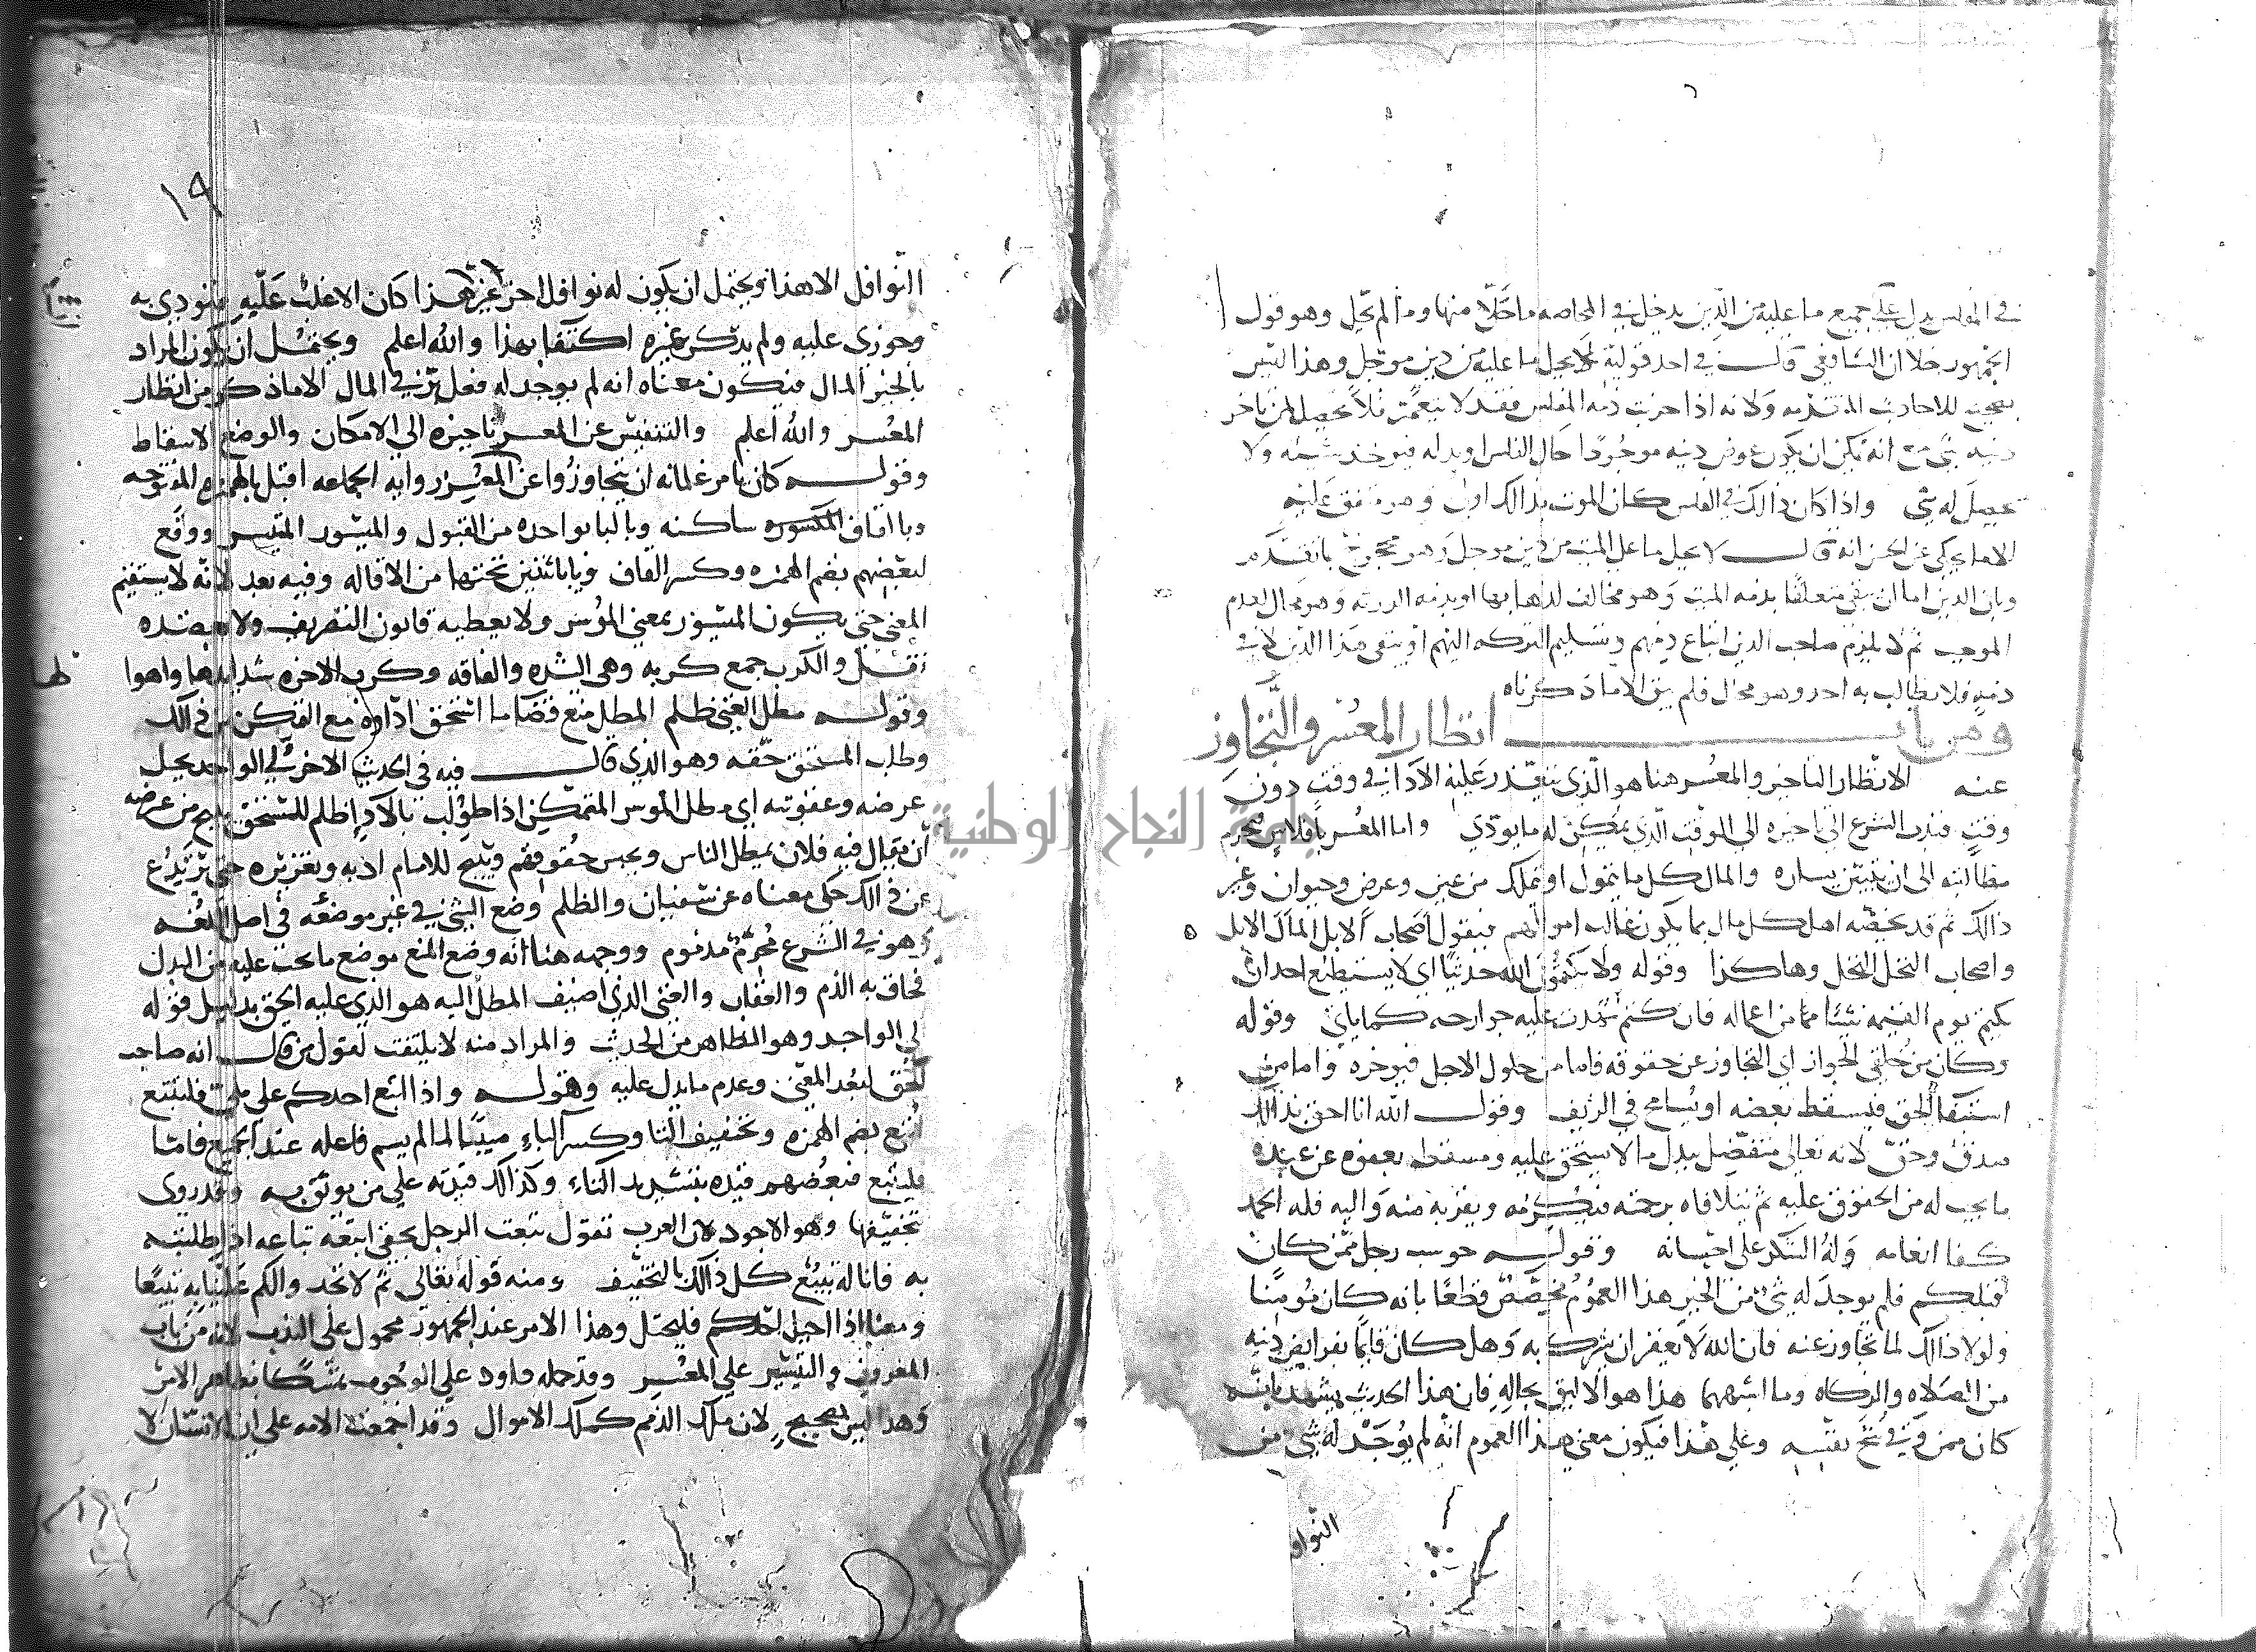 في المفلس يدل على جميع ما عليه من الدين يدخل في المحاصه ما حل منها وما لم يحل وهو قول
الجمهور خلا ان الشافعي قال في احد قوليه لا يحل ما عليه من دين موجل وهذا ليس
بصحيح للاحاديث المتقدمه ولانه اذا خربت ذمه المفلس فقد لا تنعمر فلا يحصل لمن تاخر
دينه شي مع انه يمكن ان يكون عوض دينه موجودا حال الفلس او بدله فيوخذ منه ولا
يحصل له شي واذا كان ذالك في الفلس كان الموت بذالك اولى وهو متفق عليه
الا ما يحكى عن الحسن انه قال لا يحل ما على الميت من دين موجل وهو محجوج بما تقدم
وبان الدين اما ان يبقى متعلقا بذمه الميت وهو مخالف لذهابها او بذمه الورثه وهو محال لعدم
الموجب ثم لا يلزم صاحب الدين اتباع ذممهم وتسليم التركه اليهم او يبقى هذا الدين لا في
ذمه فلا يطالب به احد وهو محال فلم يبق الا ما ذكرناه
ومن باب انظار المعسر والتجاوز
عنه الانظار التاخير والمعسر هنا هو الذي يتعذر عليه الادا في وقت دون
وقت فندب الشرع الى تاخيره الى الوقت الذي يمكن له ما يودي واما المعسر بافلاس فتحرم
مطالبته الى ان يتبين يساره والمال كل ما يتمول او يتملك من عين وعرض وحيوان وغير
ذالك ثم قد يخصه اهل كل مال بما يكون غالب اموالهم فيقول اصحاب الابل المال الابل
واصحاب النخل النخل وهاكذا وقوله ولا يكتمون الله حديثا اي لا يستطيع احد ان
يكتم يوم القيمه شيئا مما من اعماله فان كتم شهدت عليه جوارحه كما ياتي وقوله
وكان من خلقي الجواز اي التجاوز عن حقوقه فاما من حلول الاجل فيوخره واما من
استيفا الحق فيسقط بعضه او يسامح في الزيف وقول الله انا احق بذالك
صدق وحق لانه تعالى متفضل ببذل ما لا يستحق عليه ومسقط بعفوه عن عبده
ما يجب له من الحقوق عليه ثم يتلافاه برحمته فيكرمه ويقربه منه واليه فله الحمد
كفا انعامه وله الشكر على احسانه وقوله حوسب رجل ممن كان
قبلكم فلم يوجد له شي من الخير هذا العموم مخصص قطعا بانه كان مومنا
ولولا ذالك لما تجاوز عنه فان الله لا يغفر ان يشرك به وهل كان قايما بفرايض دينه
من الصلاه والزكاه وما اشبههما هذا هو الاليق بحاله فان هذا الحديث يشهد بانه
كان ممن وقي شح نفسه وعلى هذا فيكون معنى هذا العموم انه لم يوجد له شي من
النوافل
١٩
النوافل الا هذا ويحتمل ان يكون له نوافل اخر غير هذا كان الاغلب عليه فنودي به
وجوزي عليه ولم يذكر غيره اكتفا بهذا والله اعلم ويحتمل ان يكون المراد
بالخير المال فيكون معناه انه لم يوجد له فعل بر في المال الا ما ذكر من انظار
المعسر والله اعلم والتنفيس عن المعسر تاخيره الى الامكان والوضع الاسقاط
وقوله كان يامر غلمانه ان يتجاوزوا عن المعسر روايه الجماعه اقبل بالهمزه المفتوحه
وبالقاف المكسوره ساكنه وبالبا بواحده من القبول والميسور المتيسر ووقع
لبعضهم بضم الهمزه وكسر القاف وبا باثنتين تحتها من الاقاله وفيه بعد لانه لا يستقيم
المعنى حتى يكون الميسور بمعنى الموسر ولا يعطيه قانون التصريف ولا يعضده
نقل والكرب جمع كربه وهي الشده والفاقه وكرب الاخره شدايدها واهوا
لها
وقوله مطل الغني ظلم المطل منع قضا ما استحق اداوه مع التمكن من ذالك
وطلب المستحق حقه وهو الذي قال فيه في الحديث الاخر لي الواجد يحل
عرضه وعقوبته اي مطل الموسر المتمكن اذا طولب بالادا ظلم للمستحق يبيح من عرضه
ان يقال فيه فلان يمطل الناس ويحبس حقوقهم ويبيح للامام ادبه وتعزيره حتى يرتدع
عن ذالك حكى معناه عن سفيان والظلم وضع الشي في غير موضعه في اصل اللغه
وهو في الشرع محرم مذموم ووجهه هنا انه وضع المنع موضع ما يجب عليه من البذل
فحاق به الذم والعقاب والغني الذي اضيف المطل اليه هو الذي عليه الحق بدليل قوله
لي الواجد وهو الظاهر من الحديث والمراد منه لا يلتفت لقول من قال انه صاحب
الحق لبعد المعنى وعدم ما يدل عليه وقوله واذا اتبع احدكم على ملي فليتبع
اتبع بضم الهمزه وتخفيف التا وكسر الباء مبنيا لما لم يسم فاعله عند الجميع فاما
فليتبع فبعضهم قيده بتشديد التاء وكذالك قيدته على من يوثق به وقد روي
تخفيفها وهو الاجود لان العرب تقول تبعت الرجل بحقي اتبعه تباعه اذا طلبته
به فانا له تبيع كل ذالك بالتخفيف ومنه قوله تعالى ثم لا تجدوا لكم علينا به تبيعا
ومعنا اذا احيل احدكم فليحتل وهذا الامر عند الجمهور محمول على الندب لانه من باب
المعروف والتيسير على المعسر وقد حمله داود على الوجوب تمسكا بظاهر الامر
وهذا ليس بصحيح لان ملك الذمم كملك الاموال وقد اجمعت الامه على ان الانسان لا
جامعة النجاح الوطنية